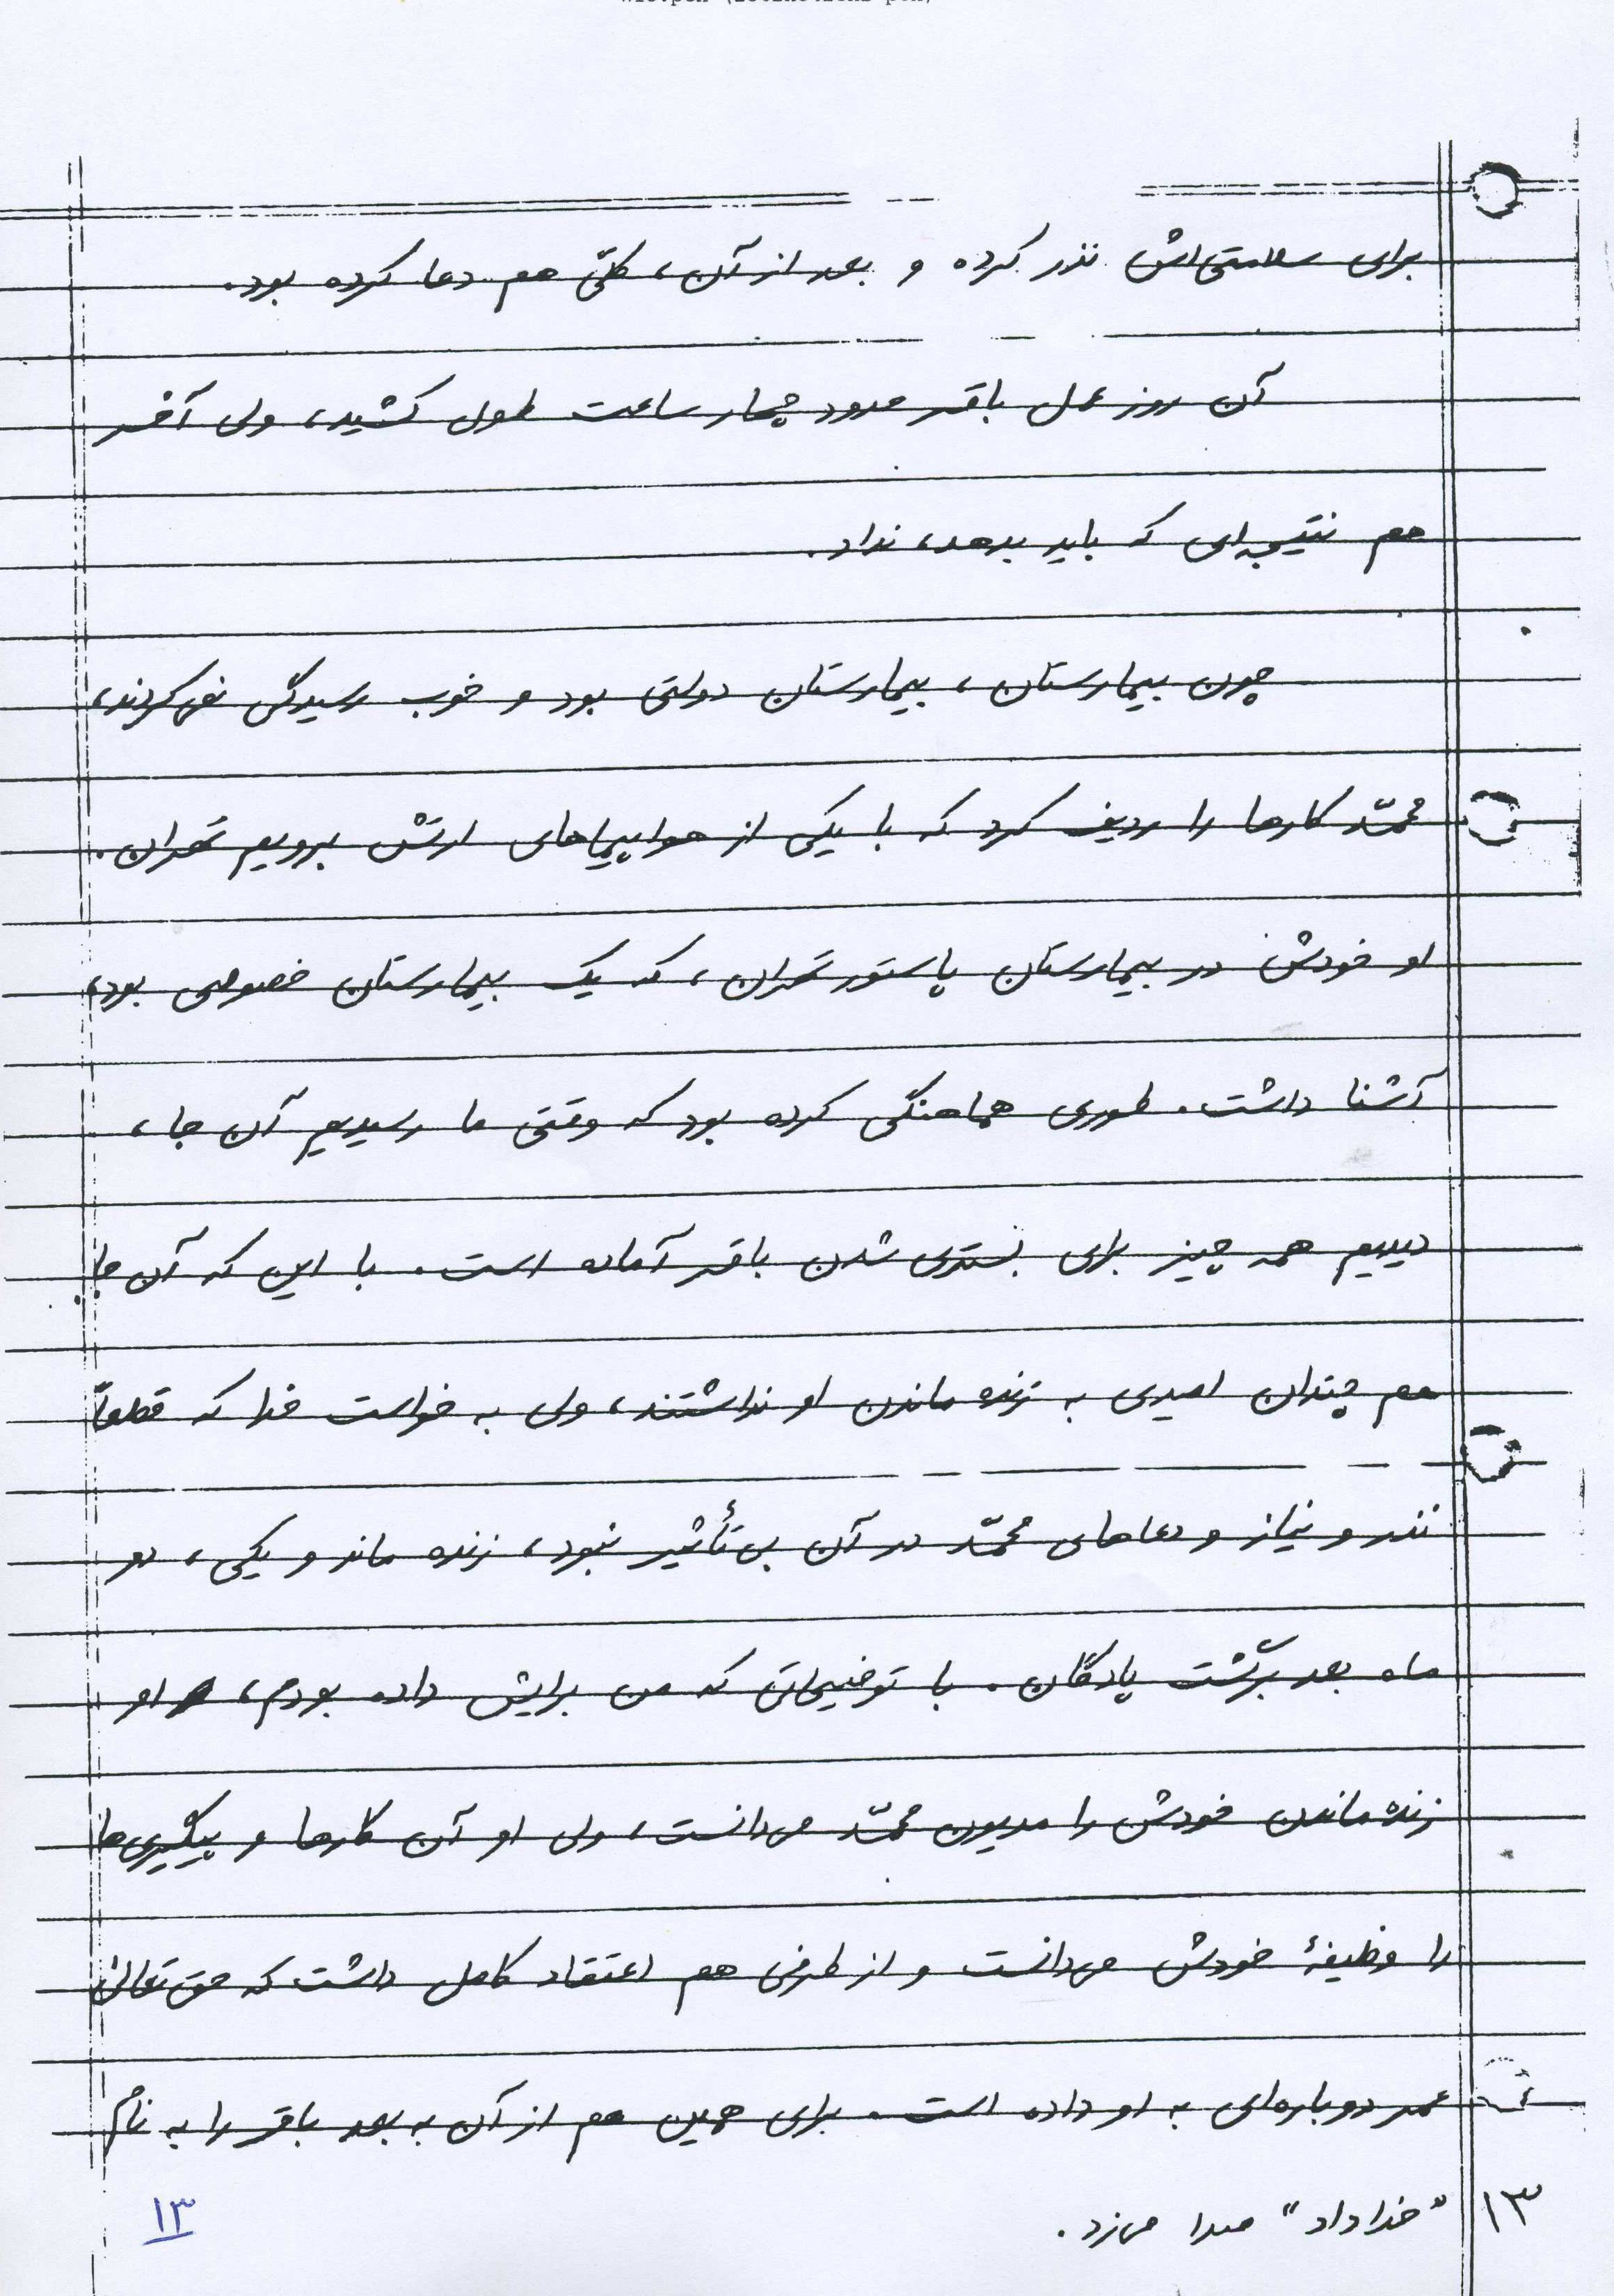 برای سلامتی‌اش نذر کرده و بعد از آن، کلّی هم دعا کرده بود.
آن روز عمل باقر حدود چهار ساعت طول کشید، ولی آخر
هم نتیجه‌ای که باید بدهد، نداد.
چون بیمارستان، بیمارستان دولتی بود و خوب رسیدگی نمی‌کردند،
محمّد کارها را ردیف کرد که با یکی از هواپیماهای ارتش برویم تهران.
او خودش در بیمارستان پاستور تهران، که یک بیمارستان خصوصی بود،
آشنا داشت. طوری هماهنگی کرده بود که وقتی ما رسیدیم آن جا،
دیدیم همه چیز برای بستری شدن باقر آماده است. با این که آن جا
هم چندان امیدی به زنده ماندن او نداشتند، ولی به خواست خدا که قطعاً
نذر و نیاز و دعاهای محمّد در آن بی‌تأثیر نبود، زنده ماند و یکی، دو
ماه بعد برگشت پادگان. با توضیحاتی که من برایش داده بودم، او
زنده ماندن خودش را مدیون محمّد می‌دانست، ولی او آن کارها و پیگیری‌ها
را وظیفهٔ خودش می‌دانست و از طرفی هم اعتقاد کامل داشت که حق تعالی
عمر دوباره‌ای به او داده است. برای همین هم از آن به بعد باقر را به نام
۱۳ "خداداد" صدا می‌زد.
۱۳